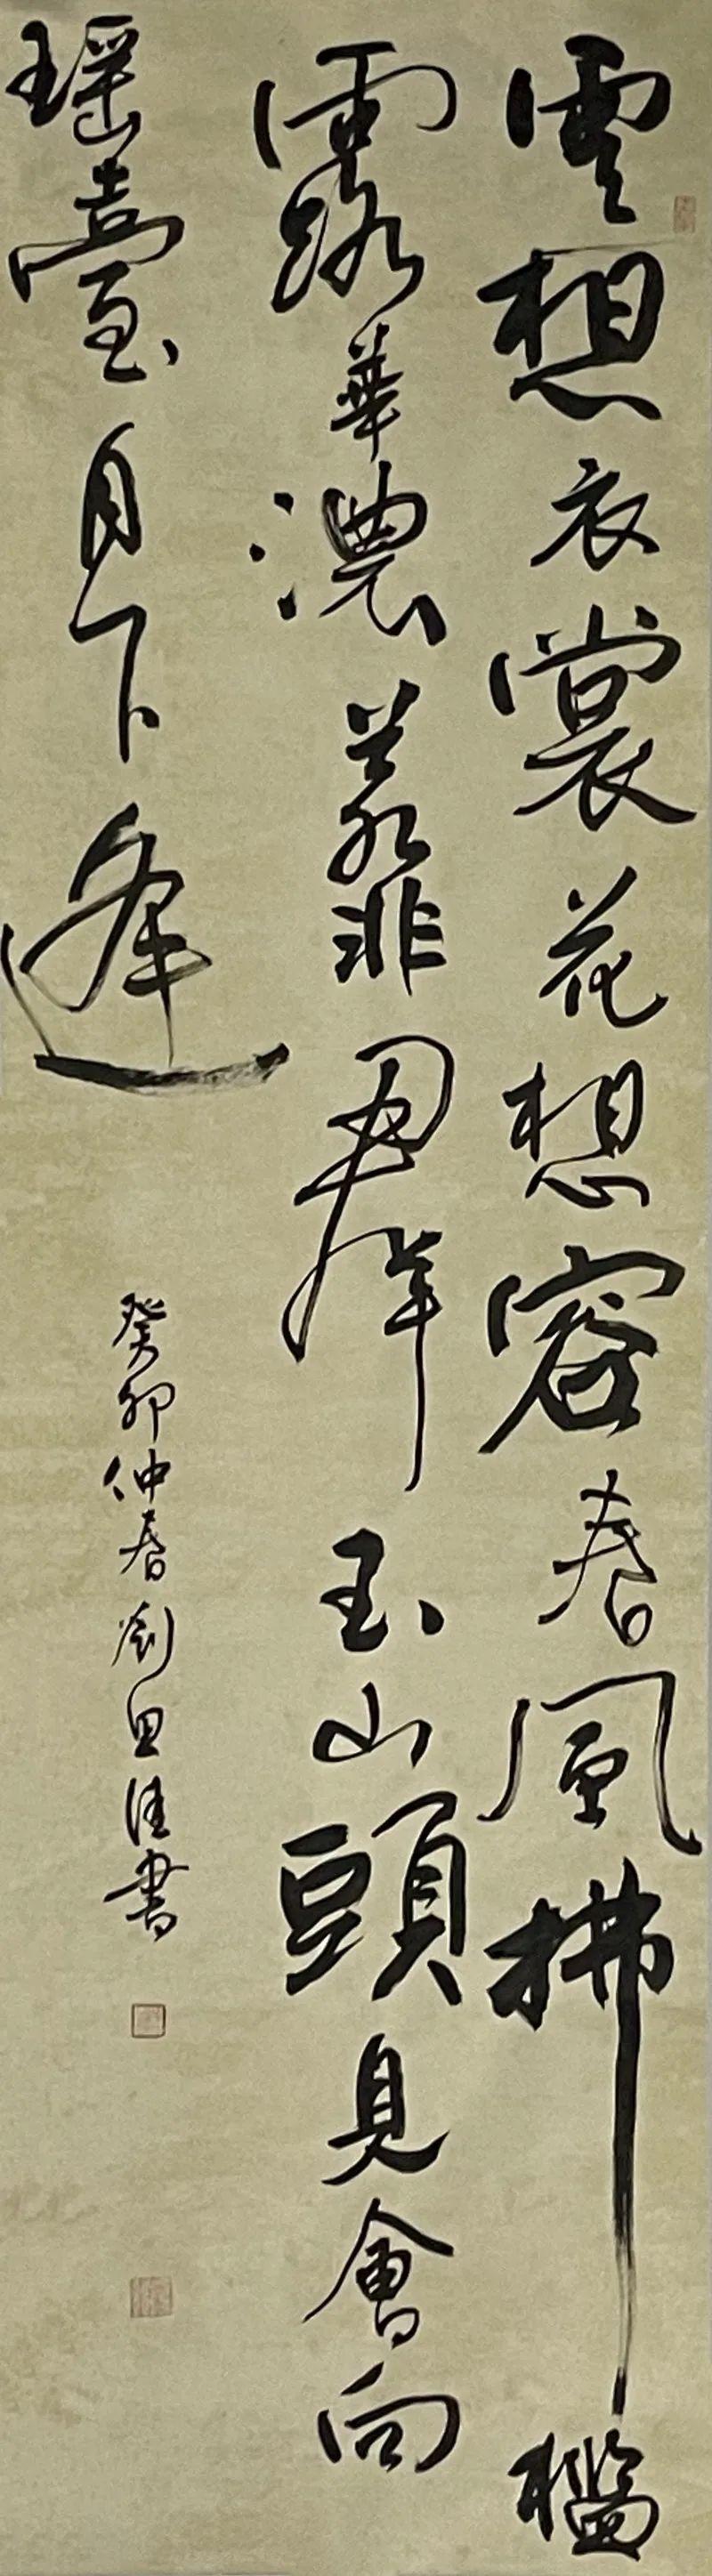 雲想衣裳花想容春風拂檻
露華濃若非羣玉山頭見會向
瑶臺月下逢
癸卯仲春劉田佳書